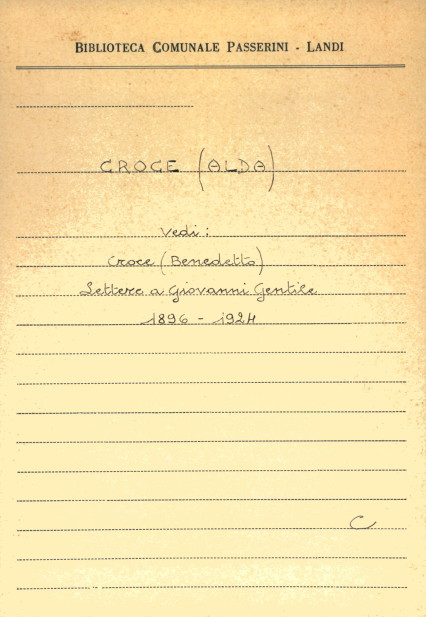 BIBLIOTECA COMUNALE PASSERINI - LANDI
CROCE (ALDA)
Vedi:
Croce (Benedetto)
Lettere a Giovanni Gentile
1896 - 1924
C